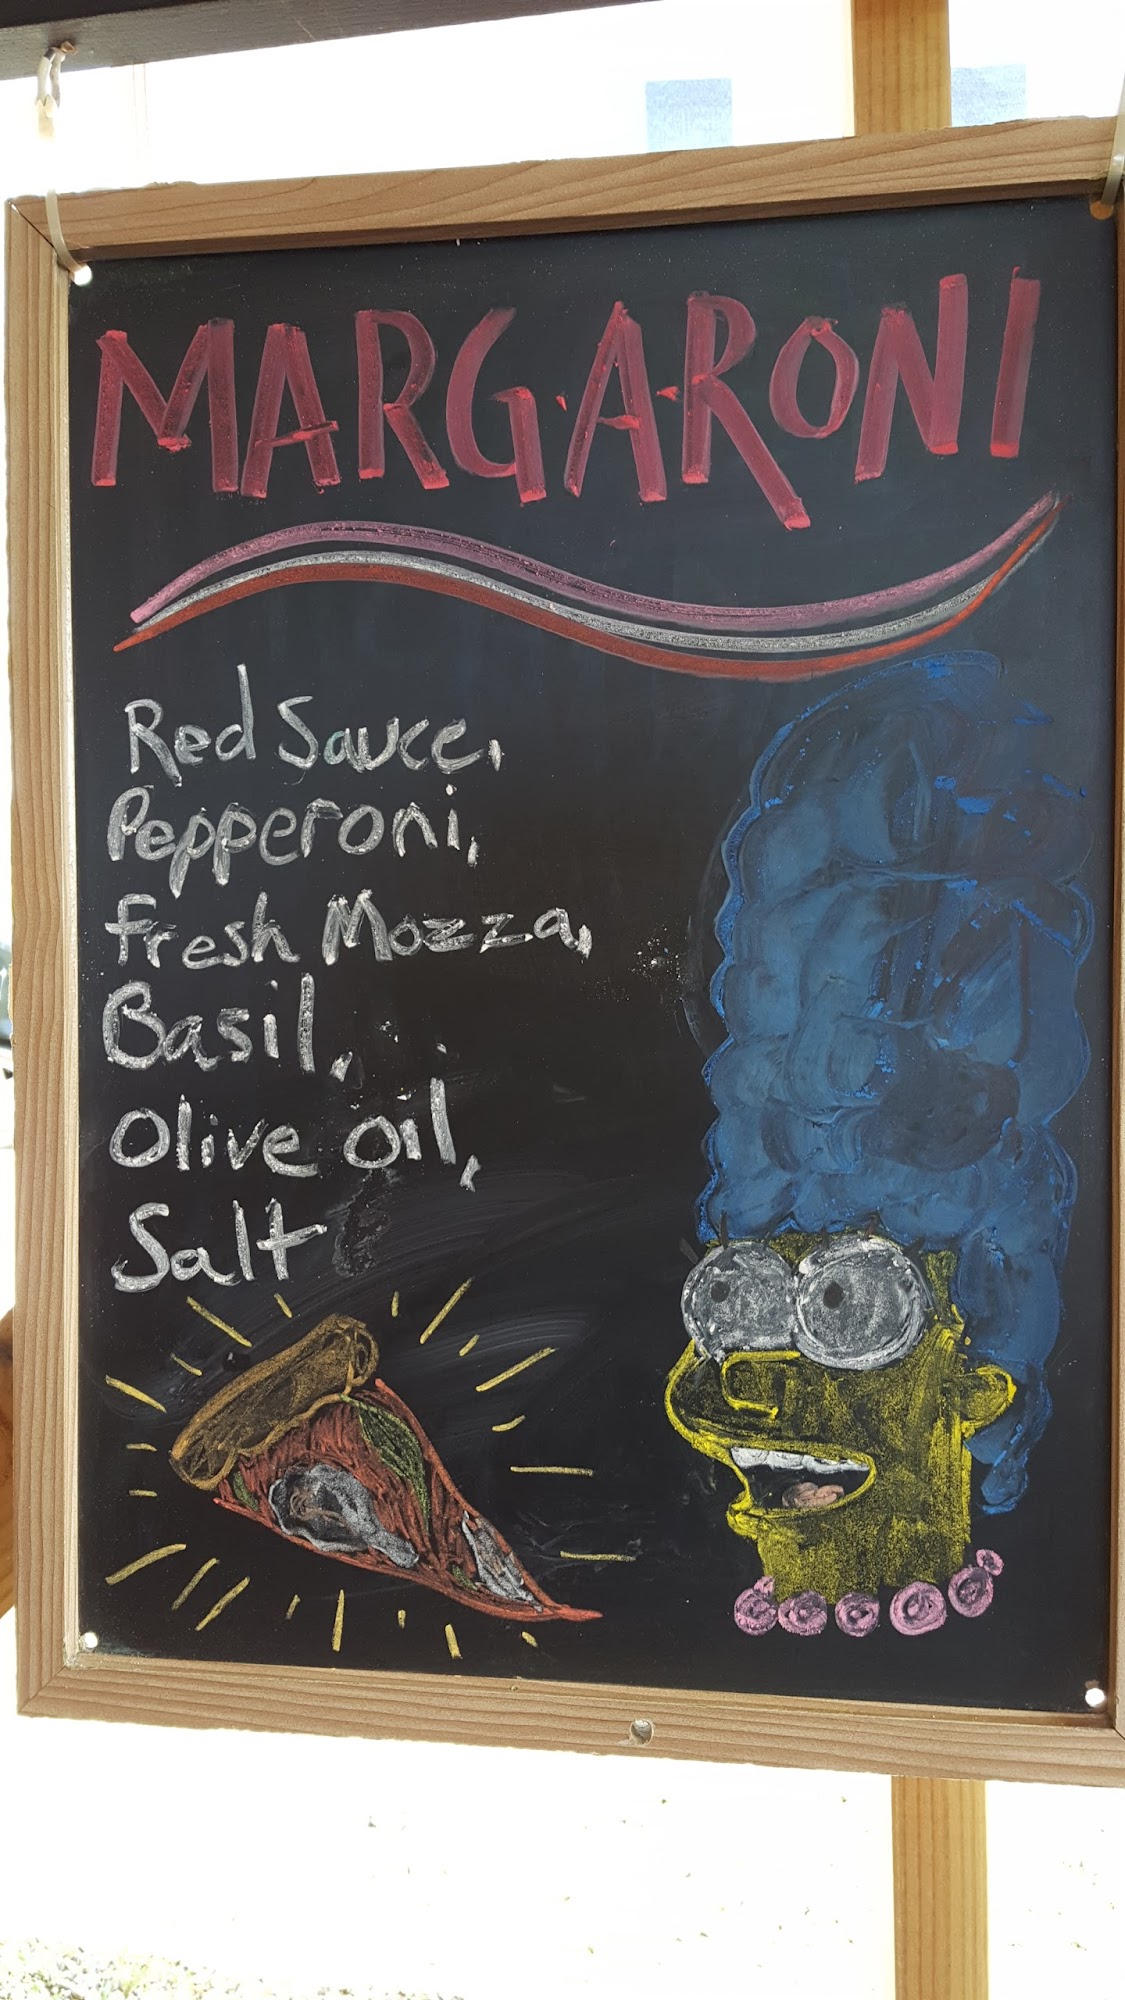 MARGARONI
Red Sauce,
Pepperoni,
Fresh Mozza,
Basil,
Olive oil,
Salt